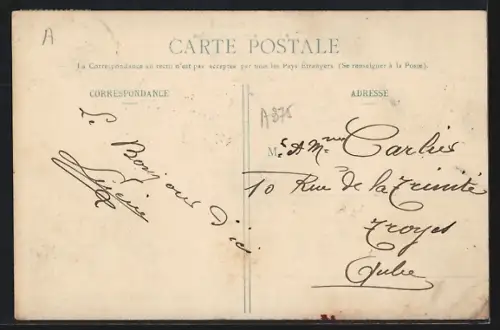 A
CARTE POSTALE
La Correspondance au recto n'est pas acceptée par tous les Pays étrangers (Se renseigner à la Poste).
CORRESPONDANCE
ADRESSE
A375
Le Bonjour d'ici
M. et Mme Carlier
10 Rue de la Trinité
Troyes
Aube